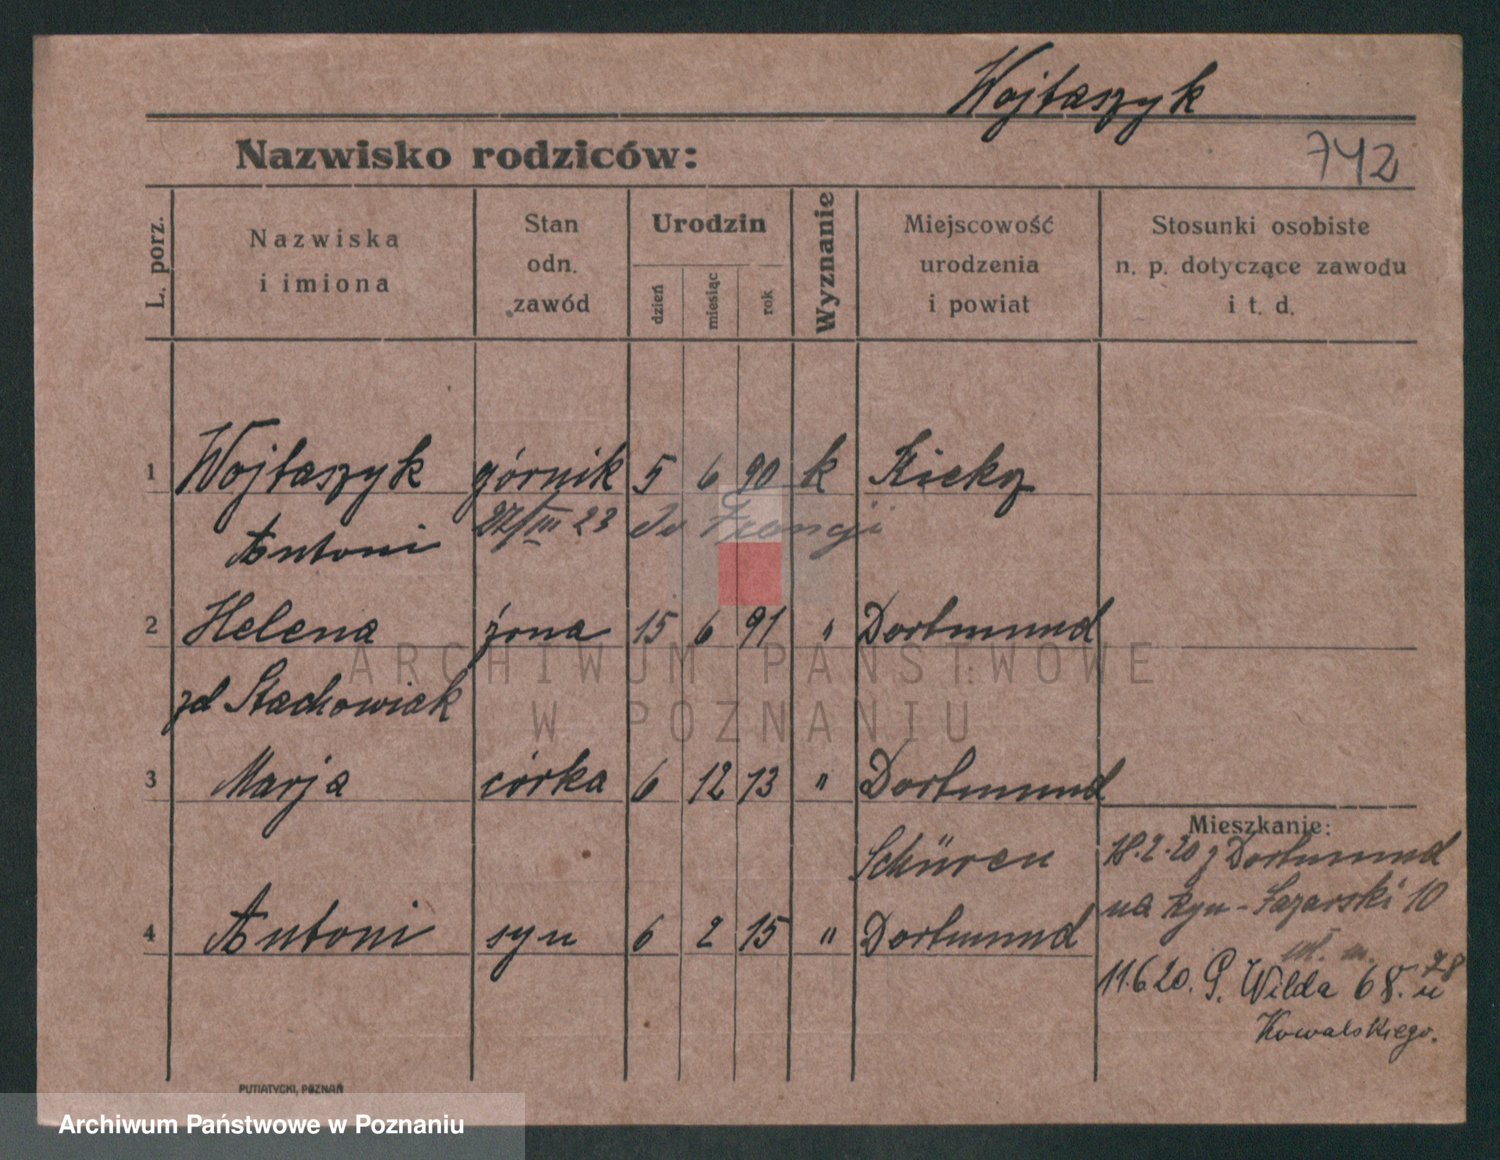 Wojtaszyk
Nazwisko rodziców:
742
L. porz.
Nazwiska
i imiona
Stan
odn.
zawód
Urodzin
dzień
miesiąc
rok
Wyznanie
Miejscowość
urodzenia
i powiat
Stosunki osobiste
n. p. dotyczące zawodu
i t. d.
1 Wojtaszyk górnik 5 6 90 k Kiekrz
Antoni 27/III 23 do Francji
2 Helena żona 15 6 91 " Dortmund
zd Stachowiak
ARCHIWUM PAŃSTWOWE
W POZNANIU
3 Marja córka 6 12 13 " Dortmund
Mieszkanie:
Schüren 18.2.20 z Dortmund
na Ryn-Łazarski 10
4 Antoni syn 6 2 15 " Dortmund
11.6.20. G. Wilda 68. u
Kowalskiego.
PUTIATYCKI, POZNAŃ
Archiwum Państwowe w Poznaniu